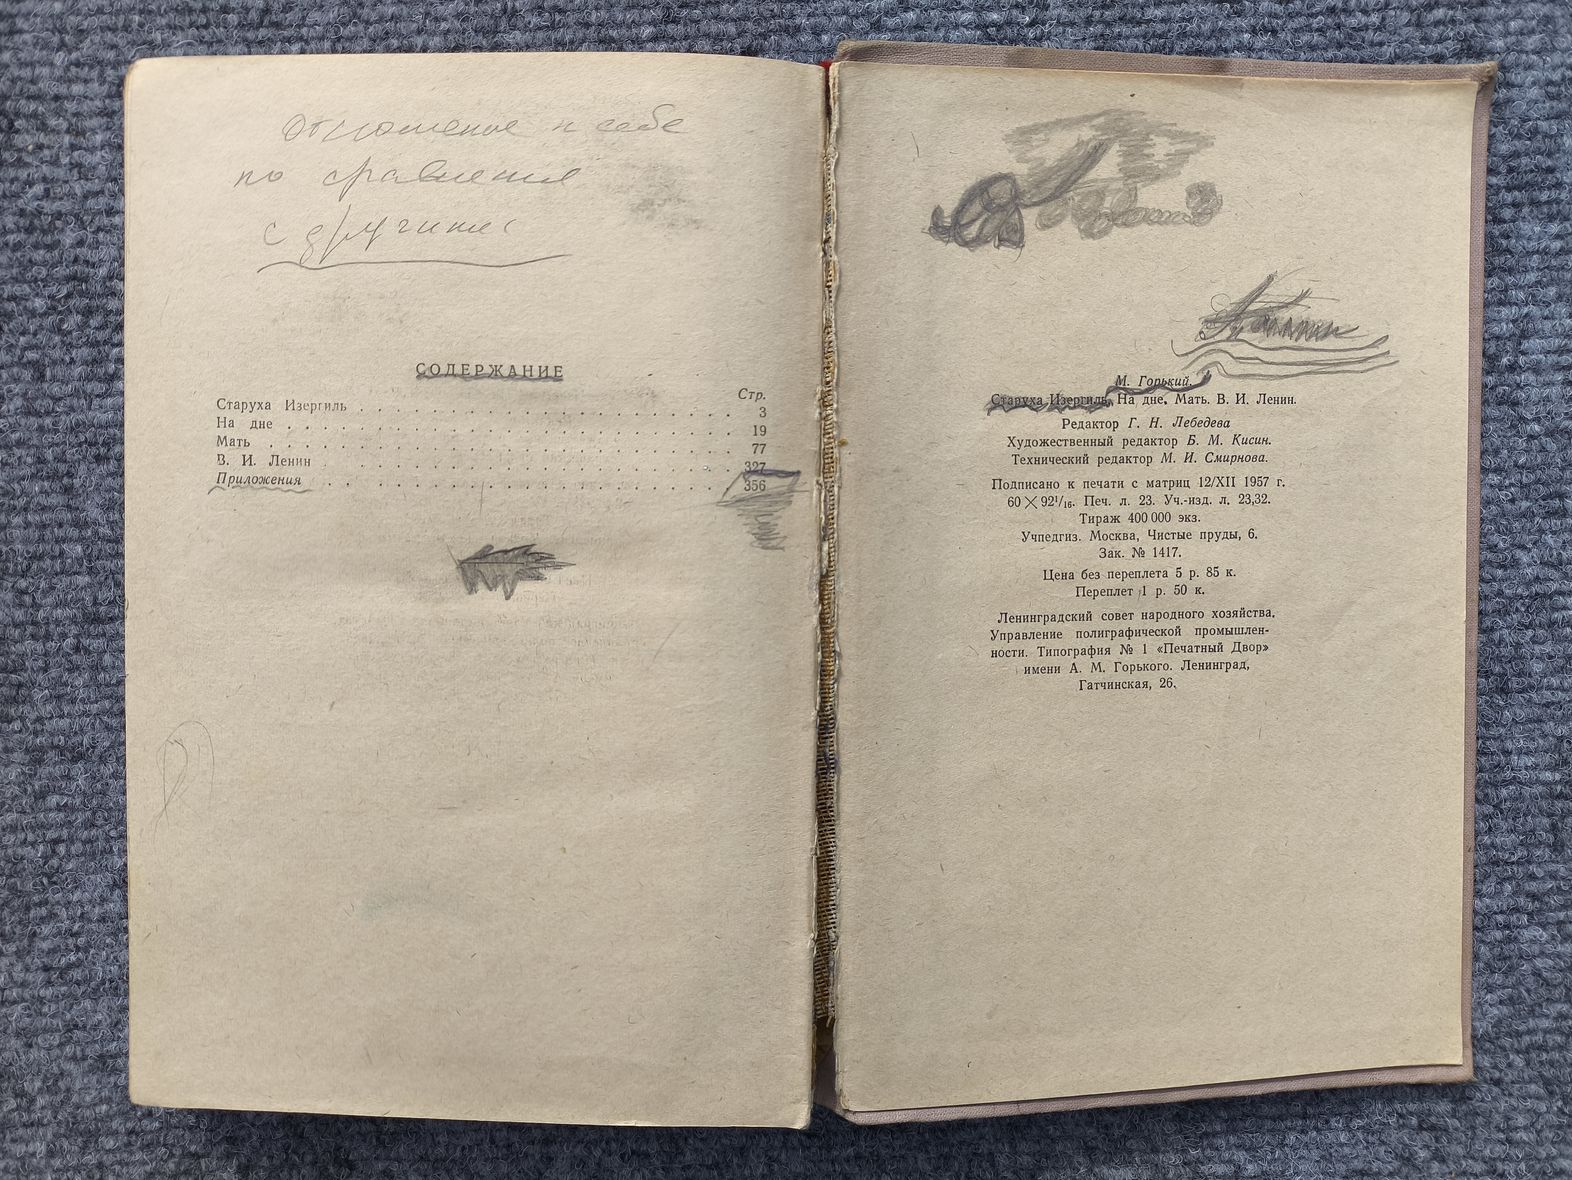 Отношение к себе
по сравнения
с другими
СОДЕРЖАНИЕ
Стр.
Старуха Изергиль . . . . . . . . . . . . . . . . . . . . . . . . 3
На дне . . . . . . . . . . . . . . . . . . . . . . . . . . . . 19
Мать . . . . . . . . . . . . . . . . . . . . . . . . . . . . . 77
В. И. Ленин . . . . . . . . . . . . . . . . . . . . . . . . . . 327
Приложения . . . . . . . . . . . . . . . . . . . . . . . . . . 356
М. Горький.
Старуха Изергиль. На дне. Мать. В. И. Ленин.
Редактор Г. Н. Лебедева
Художественный редактор Б. М. Кисин.
Технический редактор М. И. Смирнова.
Подписано к печати с матриц 12/XII 1957 г.
60 × 92 1/16. Печ. л. 23. Уч.-изд. л. 23,32.
Тираж 400 000 экз.
Учпедгиз. Москва, Чистые пруды, 6.
Зак. № 1417.
Цена без переплета 5 р. 85 к.
Переплет 1 р. 50 к.
Ленинградский совет народного хозяйства.
Управление полиграфической промышлен-
ности. Типография № 1 «Печатный Двор»
имени А. М. Горького. Ленинград,
Гатчинская, 26.